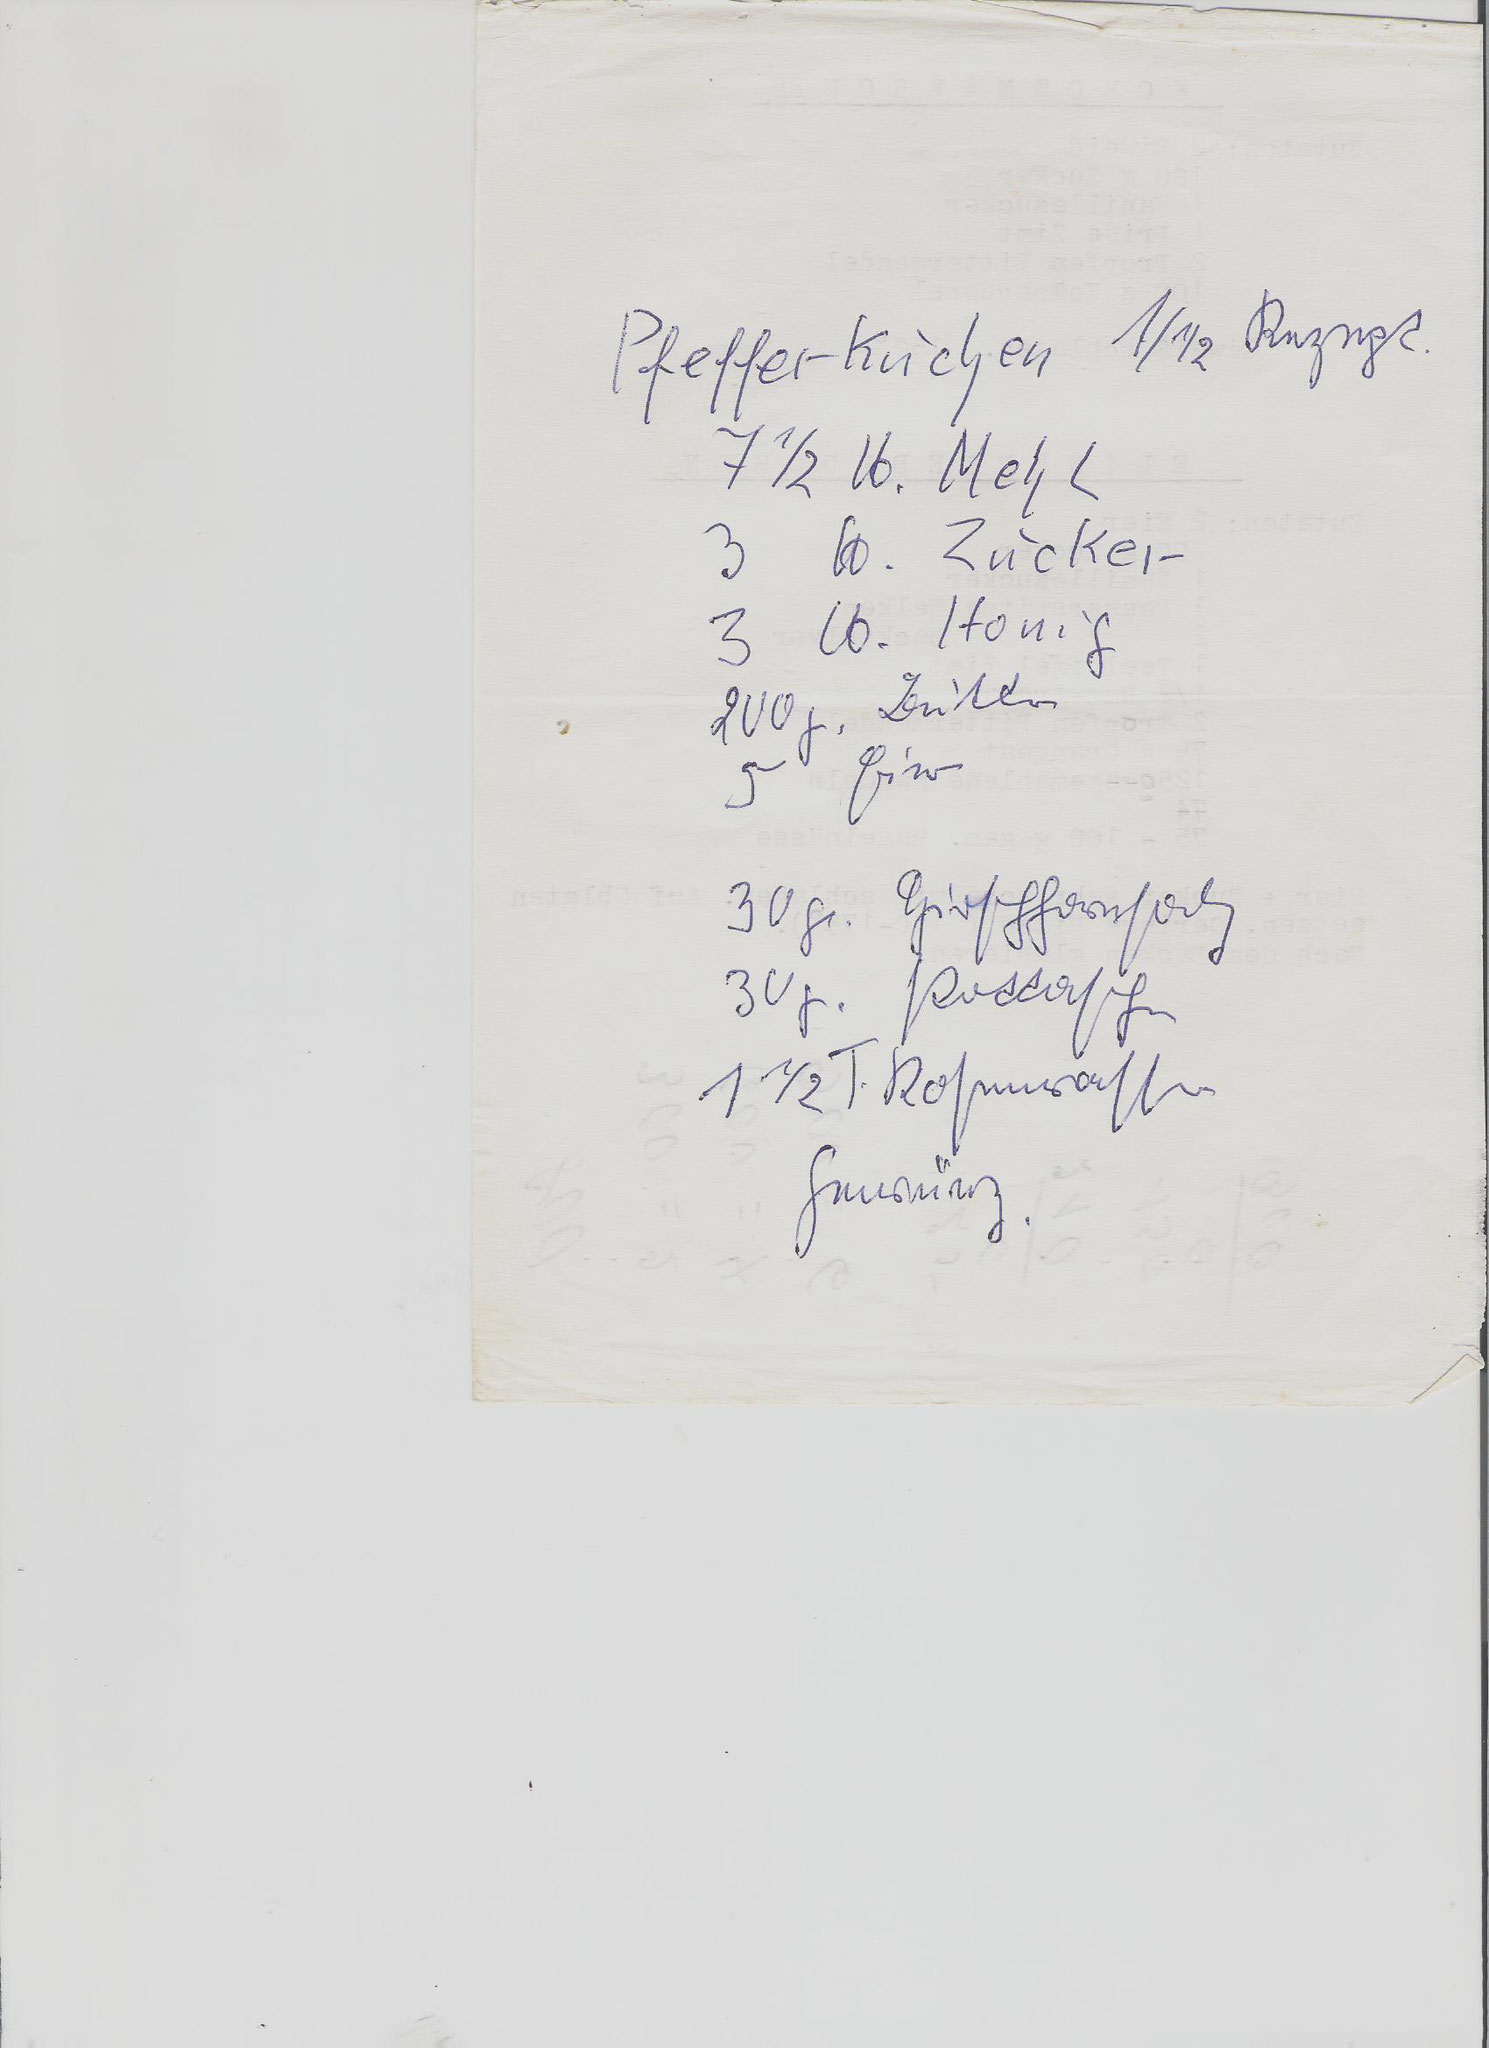 Pfeffer-Kuchen 1 1/2 Rezept.
7 1/2 lb. Mehl
3 lb. Zucker
3 lb. Honig
200 g. Butter
5 Eier
30 gr. Hirschhornsalz
30 g. Pottasche
1 1/2 T. Rosenwasser
Gewürz.